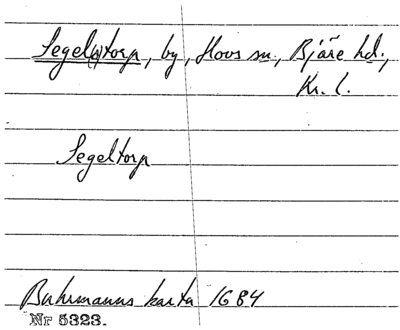 Segel(s)torp, by, Hovs sn, Bjäre hd.,
Kr. l.
Segeltorp
Buhrmanns karta 1684
Nr 5323.